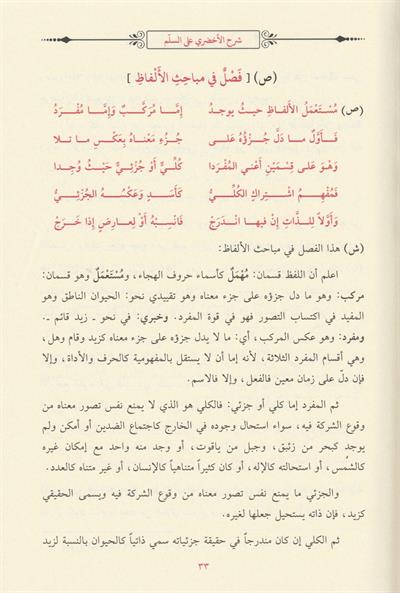 شرح الأخضري على السلّم
(ص) [ فَصْلٌ في مباحِثِ الأَلْفاظِ ]
(ص) مُسْتَعْمَلُ الألفاظِ حيثُ يوجدُ إمَّا مُرَكَّبٌ وَإِمَّا مُفْرَدُ
فَأَوَّلٌ ما دَلَّ جُزْؤُهُ عَلى جُزْءِ مَعْنَاهُ بِعَكْسِ ما تَلا
وَهْوَ عَلى قِسْمَيْنِ أعْني المُفْرَدا كُلِّيٌّ أَوْ جُزْئِيٌّ حَيْثُ وُجِدا
فَمُفْهِمُ اشْتِراكٍ الكُلِّيُّ كَأَسَدٍ وَعَكْسُهُ الجُزْئِيُّ
وَأَوَّلاً لِلذَّاتِ إِنْ فيها انْدَرَجْ فَانْسِبْهُ أَوْ لِعارِضٍ إذا خَرَجْ
(ش) هذا الفصل في مباحث الألفاظ:
اعلم أن اللفظ قسمان: مُهْمَلٌ كأسماء حروف الهجاء، ومُسْتَعْمَلٌ وهو قسمان:
مركب: وهو ما دل جزؤه على جزء معناه وهو تقييدي نحو: الحيوان الناطق وهو
المفيد في اكتساب التصور فهو في قوة المفرد. وخبري: في نحو ـ زيد قائم ـ.
ومفرد: وهو عكس المركب، أي: ما لا يدل جزؤه على جزء معناه كزيد وقام وهل،
وهي أقسام المفرد الثلاثة، لأنه إما أن لا يستقل بالمفهومية كالحرف والأداة، وإلا
فإن دلّ على زمان معين فالفعل، وإلا فالاسم.
ثم المفرد إما كلي أو جزئي: فالكلي هو الذي لا يمنع نفس تصور معناه من
وقوع الشركة فيه، سواء استحال وجوده في الخارج كاجتماع الضدين أو أمكن ولم
يوجد كبحر من زئبق، وجبل من ياقوت، أو وجد منه واحد مع إمكان غيره
كالشمس، أو استحالته كالإله، أو كان كثيراً متناهياً كالإنسان، أو غير متناه كالعدد.
والجزئي ما يمنع نفس تصور معناه من وقوع الشركة فيه ويسمى الحقيقي
كزيد، فإن ذاته يستحيل جعلها لغيره.
ثم الكلي إن كان مندرجاً في حقيقة جزئياته سمي ذاتياً كالحيوان بالنسبة لزيد
٣٣